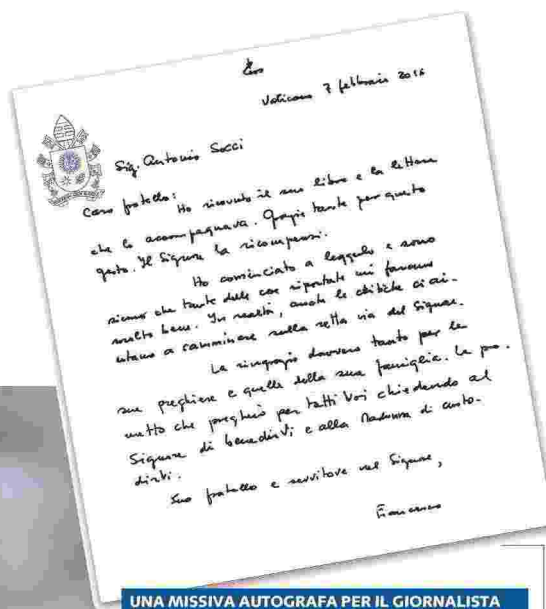 Vaticano 7 febbraio 2016
Sig. Antonio Socci
Caro fratello:
Ho ricevuto il suo libro e la lettera
che lo accompagnava. Grazie tante per questo
gesto. Il Signore la ricompensi.
Ho cominciato a leggerlo e sono
sicuro che tante delle cose riportate mi faranno
molto bene. In realtà, anche le critiche ci ai-
utano a camminare sulla retta via del Signore.
La ringrazio davvero tanto per le
sue preghiere e quelle della sua famiglia. Le pro-
metto che pregherò per tutti Voi chiedendo al
Signore di benedirVi e alla Madonna di custo-
dirVi.
Suo fratello e servitore nel Signore,
Francesco
UNA MISSIVA AUTOGRAFA PER IL GIORNALISTA